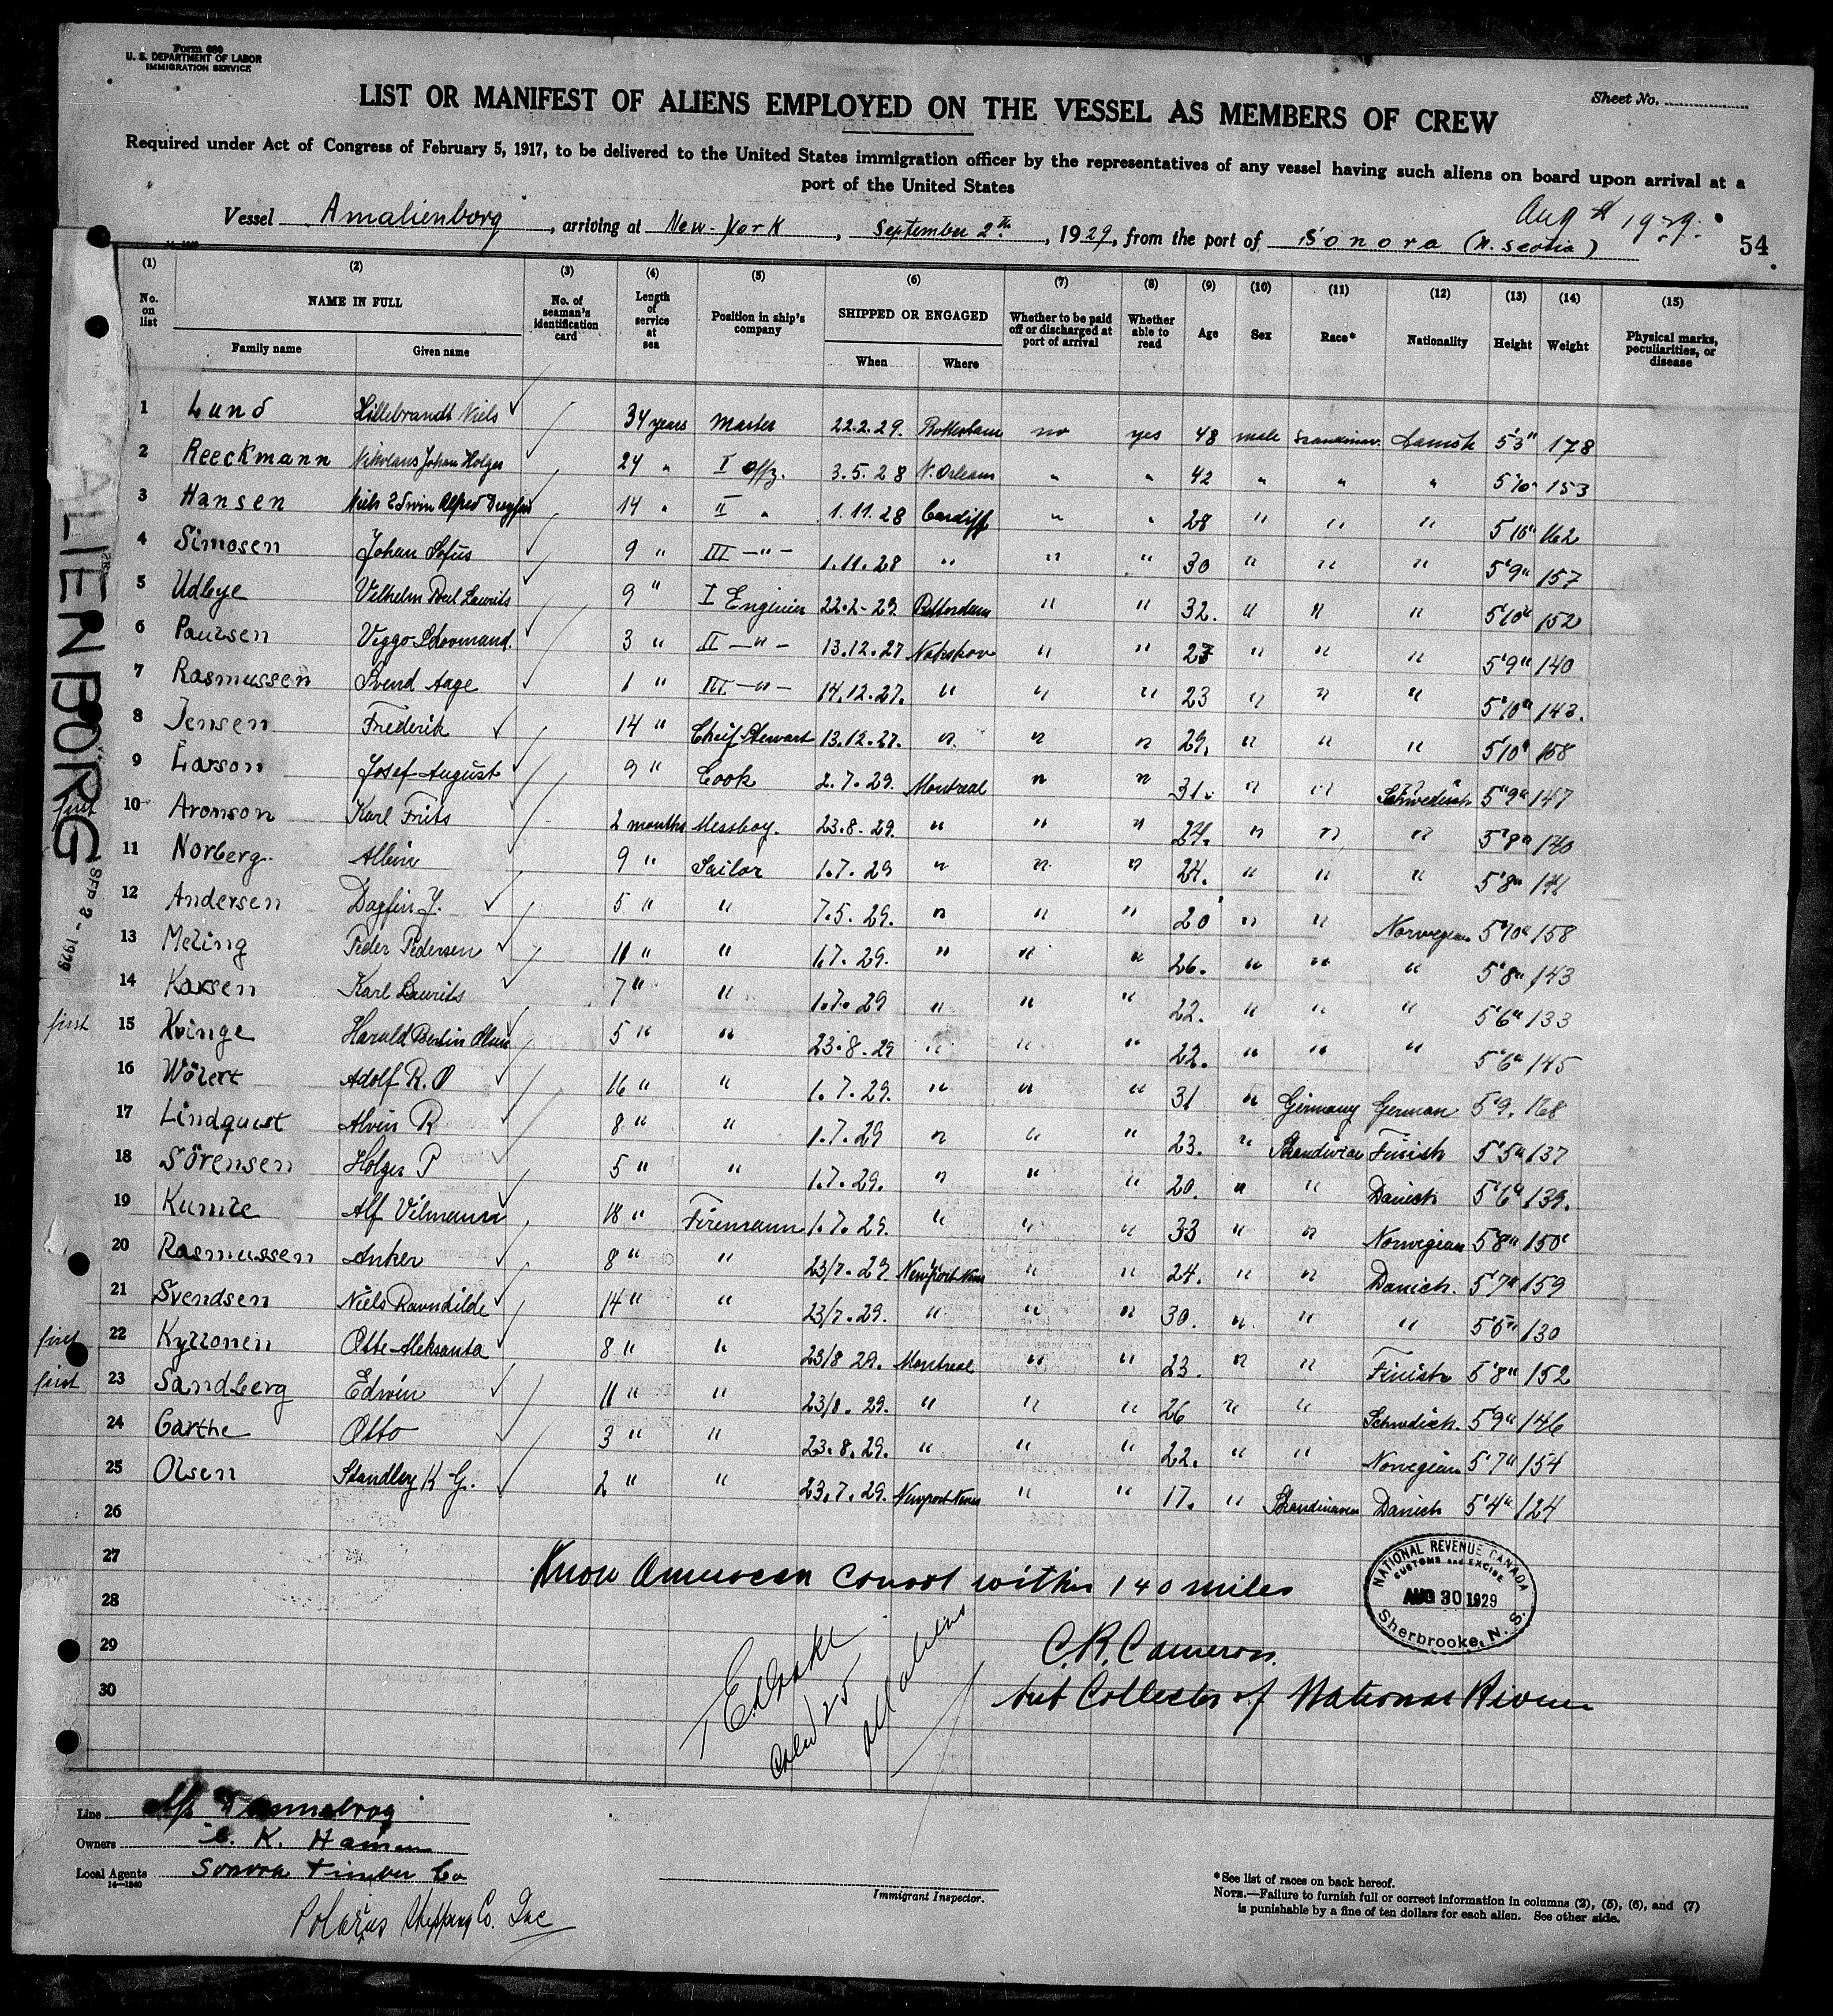 Form 680
U. S. DEPARTMENT OF LABOR
IMMIGRATION SERVICE
Sheet No.
LIST OR MANIFEST OF ALIENS EMPLOYED ON THE VESSEL AS MEMBERS OF CREW
Required under Act of Congress of February 5, 1917, to be delivered to the United States immigration officer by the representatives of any vessel having such aliens on board upon arrival at a
port of the United States
Aug 1929.
Vessel Amalienborg, arriving at New-York, September 2th, 1929, from the port of Sonora (N. Scotia)
54
(1) (2) (3) (4) (5) (6) (7) (8) (9) (10) (11) (12) (13) (14) (15)
No. on list NAME IN FULL No. of seaman's identification card Length of service at sea Position in ship's company SHIPPED OR ENGAGED Whether to be paid off or discharged at port of arrival Whether able to read Age Sex Race* Nationality Height Weight Physical marks, peculiarities, or disease
Family name Given name When Where
1 Lund Hillebrandt Niels 34 years Master 22.2.29. Rotterdam no yes 48 male Scandinav. Danish 5'3" 178
2 Reeckmann Nikolaus Johan Holger 24 " I offz. 3.5.28 N. Orleans " " 42 " " " 5'10" 153
3 Hansen Niels Edvin Alfred 14 " II " 1.11.28 Cardiff " " 28 " " " 5'10" 162
4 Simosen Johan Sofus 9 " III -"- 1.11.28 " " " 30 " " " 5'9" 157
5 Udbye Vilhelm Poul Laurits 9 " I Enginier 22.2-29 Rotterdam " " 32. " " " 5'10" 152
6 Paulsen Viggo 3 " II -"- 13.12.27 Nakskov " " 23 " " " 5'9" 140
7 Rasmussen Svend Aage 1 " III -"- 14.12.27. " " " 23 " " " 5'10" 143.
8 Jensen Frederik 14 " Cheif Stewart 13.12.27. " " " 29. " " " 5'10" 158
9 Larson Josef August 9 " Cook 2.7.29. Montreal " " 31. " " Schwedisch 5'9" 147
first 10 Aronson Karl Frits 2 months Messboy. 23.8-29. " " " 24. " " " 5'8" 140
11 Norberg Albin 9 " Sailor 1.7.29 " " " 24. " " " 5'8" 141
12 Andersen Dagfin J. 5 " " 7.5.29. " " " 20 " " Norwegian 5'10" 158
13 Meling Peder Pedersen 11 " " 1.7.29. " " " 26. " " " 5'8" 143
14 Karsen Karl Laurits 7 " " 1.7.29 " " " 22. " " " 5'6" 133
first 15 Kvinge Harald Bertin Olsen 5 " " 23.8.29 " " " 22. " " " 5'6" 145
16 Wölert Adolf R. O 16 " " 1.7.29. " " " 31 " Germany German 5'9. 168
17 Lindquist Alvin R 8 " " 1.7.29 " " " 23. " Finish 5'5" 137
18 Sörensen Holger P 5 " " 1.7.29. " " " 20. " " Danich 5'6" 139.
19 Kumle Alf Vilmann 18 " Firemann 1.7.29. " " " 33 " " Norwegian 5'8" 150
20 Rasmussen Anker 8 " " 23/7-29 Newport-News " " 24. " " Danich. 5'7" 159
21 Svendsen Niels Ravnkilde 14 " " 23/7.29. " " " 30. " " " 5'6" 130
first 22 Kyllonen Otto Aleksanta 8 " " 23/8 29. Montreal " " 23. " " Finish 5'8" 152
first 23 Sandberg Edwin 11 " " 23/8.29. " " " 26 " " Schwedich. 5'9" 146
24 Garthe Otto 3 " " 23.8.29. " " " 22. " " Norwegian 5'7" 154
25 Olsen Standley K G. 2 " " 23.7.29. Newport News " " 17. " Skandinaven Danich 5'4" 124
26
27
28
29
30
within 140 miles
NATIONAL REVENUE CANADA
CUSTOMS and EXCISE
AUG 30 1929
Sherbrooke, N. S.
C.R. Cameron.
Sub Collector of National Revenue
all aliens
ALIENBORG
SEP 2 - 1929
Line Dannebrog
Owners C. K. Hansen
Local Agents Sonora Timber Co
14—1240
Polarius Shipping Co. Inc
Immigrant Inspector.
*See list of races on back hereof.
NOTE.—Failure to furnish full or correct information in columns (2), (5), (6), and (7)
is punishable by a fine of ten dollars for each alien. See other side.